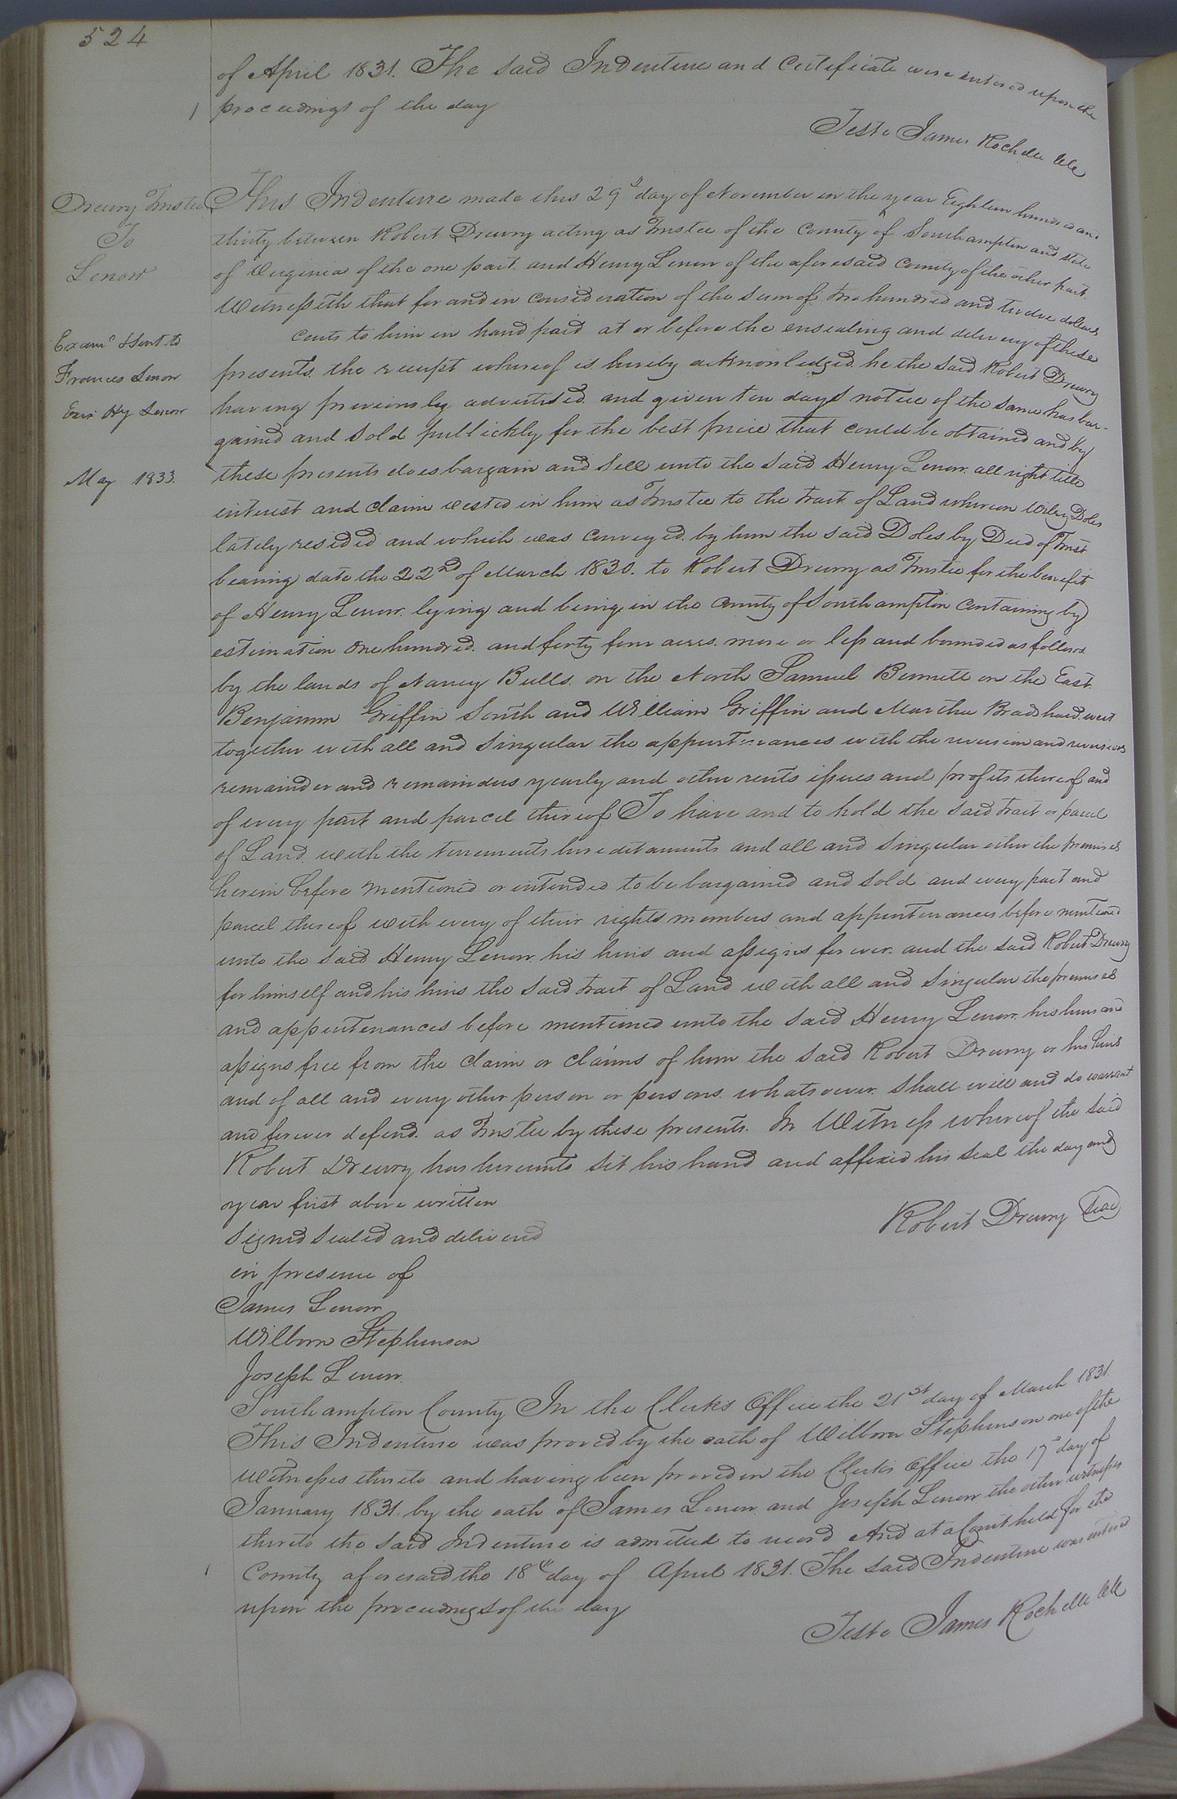 524
of April 1831. The said Indenture and Certificate were entered upon the
proceedings of the day
Teste James Rochelle Clk
Drewry Trustee
To
Lenow
Examd & Sent to
Frances Lenow
Exrx Hy Lenow
May 1833.
This Indenture made this 29th day of November in the year Eighteen hundred and
thirty between Robert Drewry acting as Trustee of the County of Southampton and State
of Virginia of the one part and Henry Lenow of the aforesaid County of the other part
Witnesseth that for and in consideration of the sum of two hundred and twelve dollars
cents to him in hand paid at or before the ensealing and delivery of these
presents the receipt whereof is hereby acknowledged he the said Robert Drewry
having previously advertised and given ten days notice of the same has bar-
gained and sold publickly for the best price that could be obtained and by
these presents does bargain and sell unto the said Henry Lenow all right title
interest and claim vested in him as Trustee to the tract of Land whereon Wiley Doles
lately resided and which was conveyed by him the said Doles by Deed of Trust
bearing date the 22nd of March 1830. to Robert Drewry as Trustee for the benefit
of Henry Lenow lying and being in the County of Southampton Containing by
estimation One hundred and forty four acres more or less and bounded as follows
by the lands of Nancy Bulls on the North Samuel Bennett on the East
Benjamin Griffin South and William Griffin and Martha Bradhard west
together with all and singular the appurtenances with the reversion and reversions
remainder and remainders yearly and other rents issues and profits thereof and
of every part and parcel thereof To have and to hold the said tract or parcel
of Land with the tenements hereditaments and all and singular other the premises
herein before mentioned or intended to be bargained and sold and every part and
parcel thereof with every of their rights members and appurtenances before mentioned
unto the said Henry Lenow his heirs and assigns forever and the said Robert Drewry
for himself and his heirs the said tract of Land with all and singular the premises
and appurtenances before mentioned unto the said Henry Lenow his heirs and
assigns free from the claim or claims of him the said Robert Drewry or his heirs
and of all and every other person or persons whatsoever shall will and do warrant
and forever defend as Trustee by these presents. In Witness whereof the said
Robert Drewry has hereunto set his hand and affixed his seal the day and
year first above written
Robert Drewry Seal
Signed Sealed and delivered
in presence of
James Lenow
Wilborn Stephenson
Joseph Lenow
Southampton County In the Clerks Office the 21st day of March 1831.
This Indenture was proved by the oath of Wilborn Stephenson one of the
witnesses thereto and having been proved in the Clerks Office the 17th day of
January 1831. by the oath of James Lenow and Joseph Lenow the other witnesses
thereto the said Indenture is admitted to record And at a Court held for the
County aforesaid the 18th day of April 1831. The said Indenture was entered
upon the proceedings of the day
Teste James Rochelle Clk